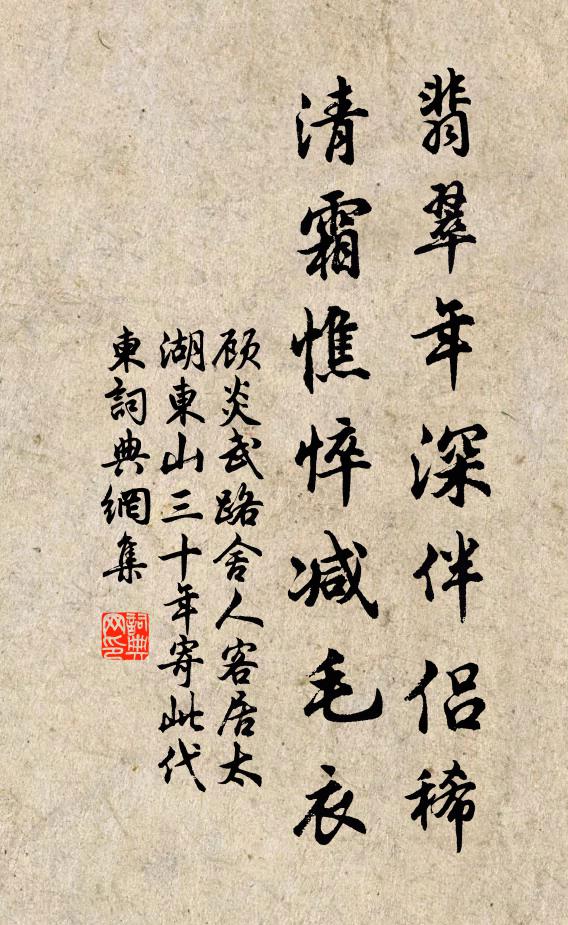 翡翠年深伴侣稀
清霜憔悴减毛衣
顾炎武路舍人客居太
湖東山三十年寄此代
東詞典網集
詞典
网印